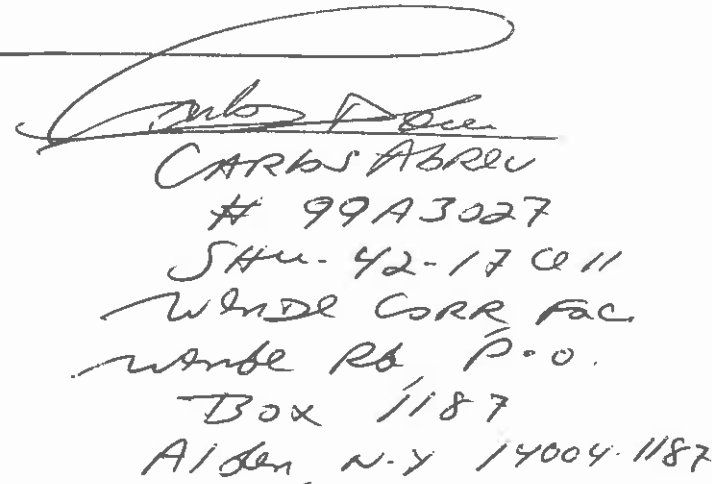 Carlos Abreu
CARlos AbReu
# 99A3027
SHU-42-17 Cell
WENDE CORR FAC.
WENDE Rd, P.O.
Box 1187
Alden, N.Y 14004-1187